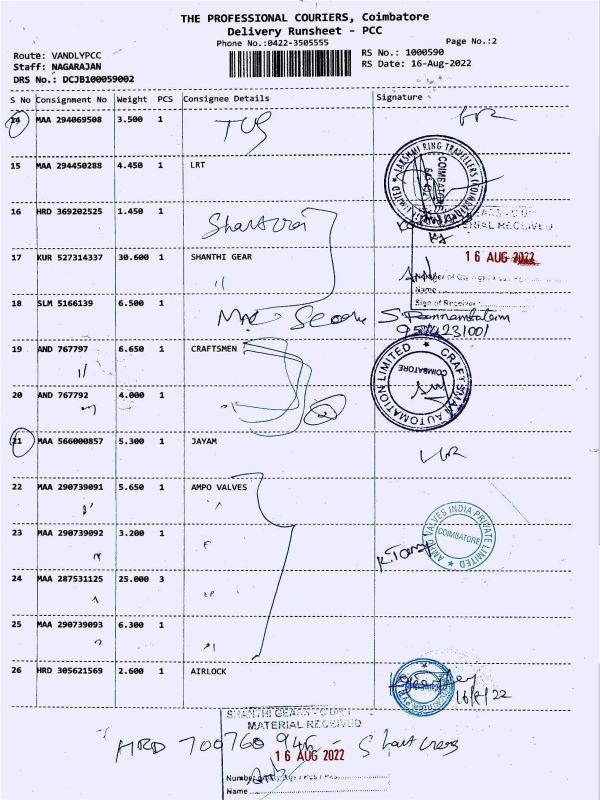 THE PROFESSIONAL COURIERS, Coimbatore
Delivery Runsheet - PCC
Phone No.:0422-3505555
Page No.:2
Route: VANDLYPCC
RS No.: 1000590
Staff: NAGARAJAN
RS Date: 16-Aug-2022
DRS No.: DCJB100059002
S No Consignment No Weight PCS Consignee Details Signature
14 MAA 294069508 3.500 1
15 MAA 294450288 4.450 1 LRT
LAKSHMI RING TRAVELLERS (COIMBATORE) LIMITED
COIMBATORE
16 HRD 369202525 1.450 1
MATERIAL RECEIVED
17 KUR 527314337 30.600 1 SHANTHI GEAR
16 AUG 2022
Name
Sign of Receiver
18 SLM 5166139 6.500 1
19 AND 767797 6.650 1 CRAFTSMEN
CRAFTSMAN AUTOMATION LIMITED
COIMBATORE
20 AND 767792 4.000 1
2
21 MAA 566000857 5.300 1 JAYAM
22 MAA 290739091 5.650 1 AMPO VALVES
AMPO VALVES INDIA PRIVATE LIMITED
COIMBATORE
23 MAA 290739092 3.200 1
24 MAA 287531125 25.000 3
25 MAA 290739093 6.300 1
26 HRD 305621569 2.600 1 AIRLOCK
16/8/22
SHANTHI GEARS
MATERIAL RECEIVED
HRD 700760 946 -
16 AUG 2022
Name